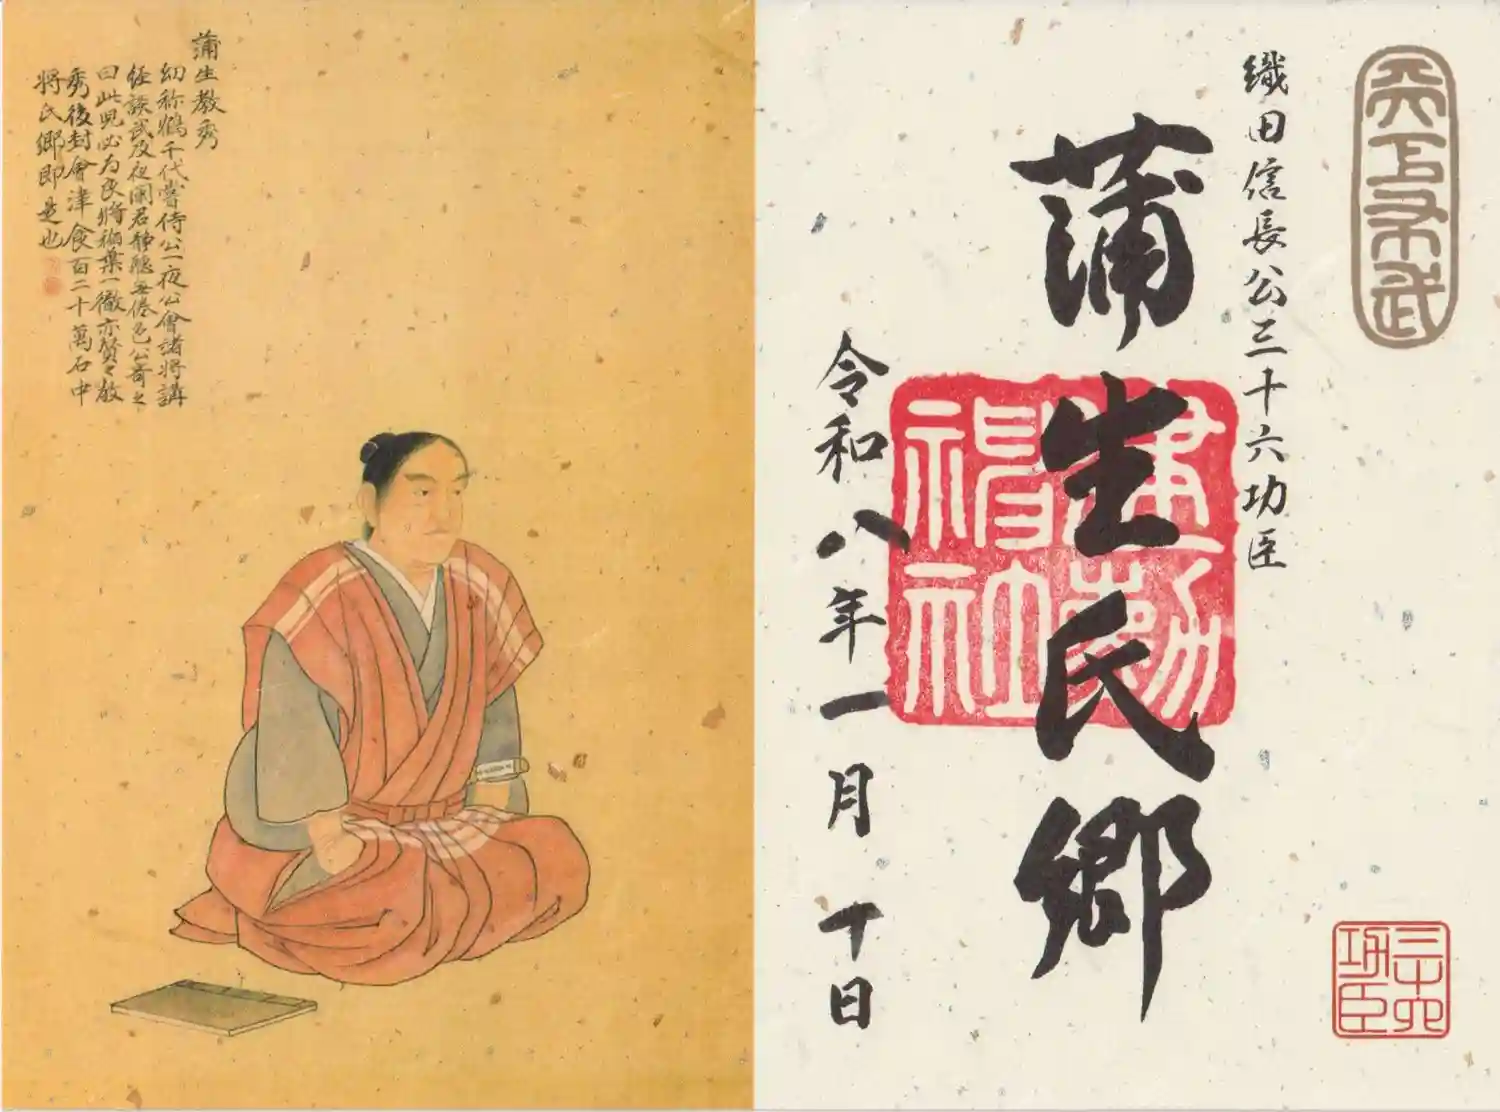 天下布武
織田信長公三十六功臣
蒲生氏郷
建勲神社
令和八年一月十日
三十六功臣
蒲生教秀
幼称鶴千代嘗侍公一夜公會諸将講
経談武及夜闌君静聴無倦色公奇之
曰此児必为良将稲葉一徹亦賛教
秀後封會津食百二十萬石中
将氏郷即是也